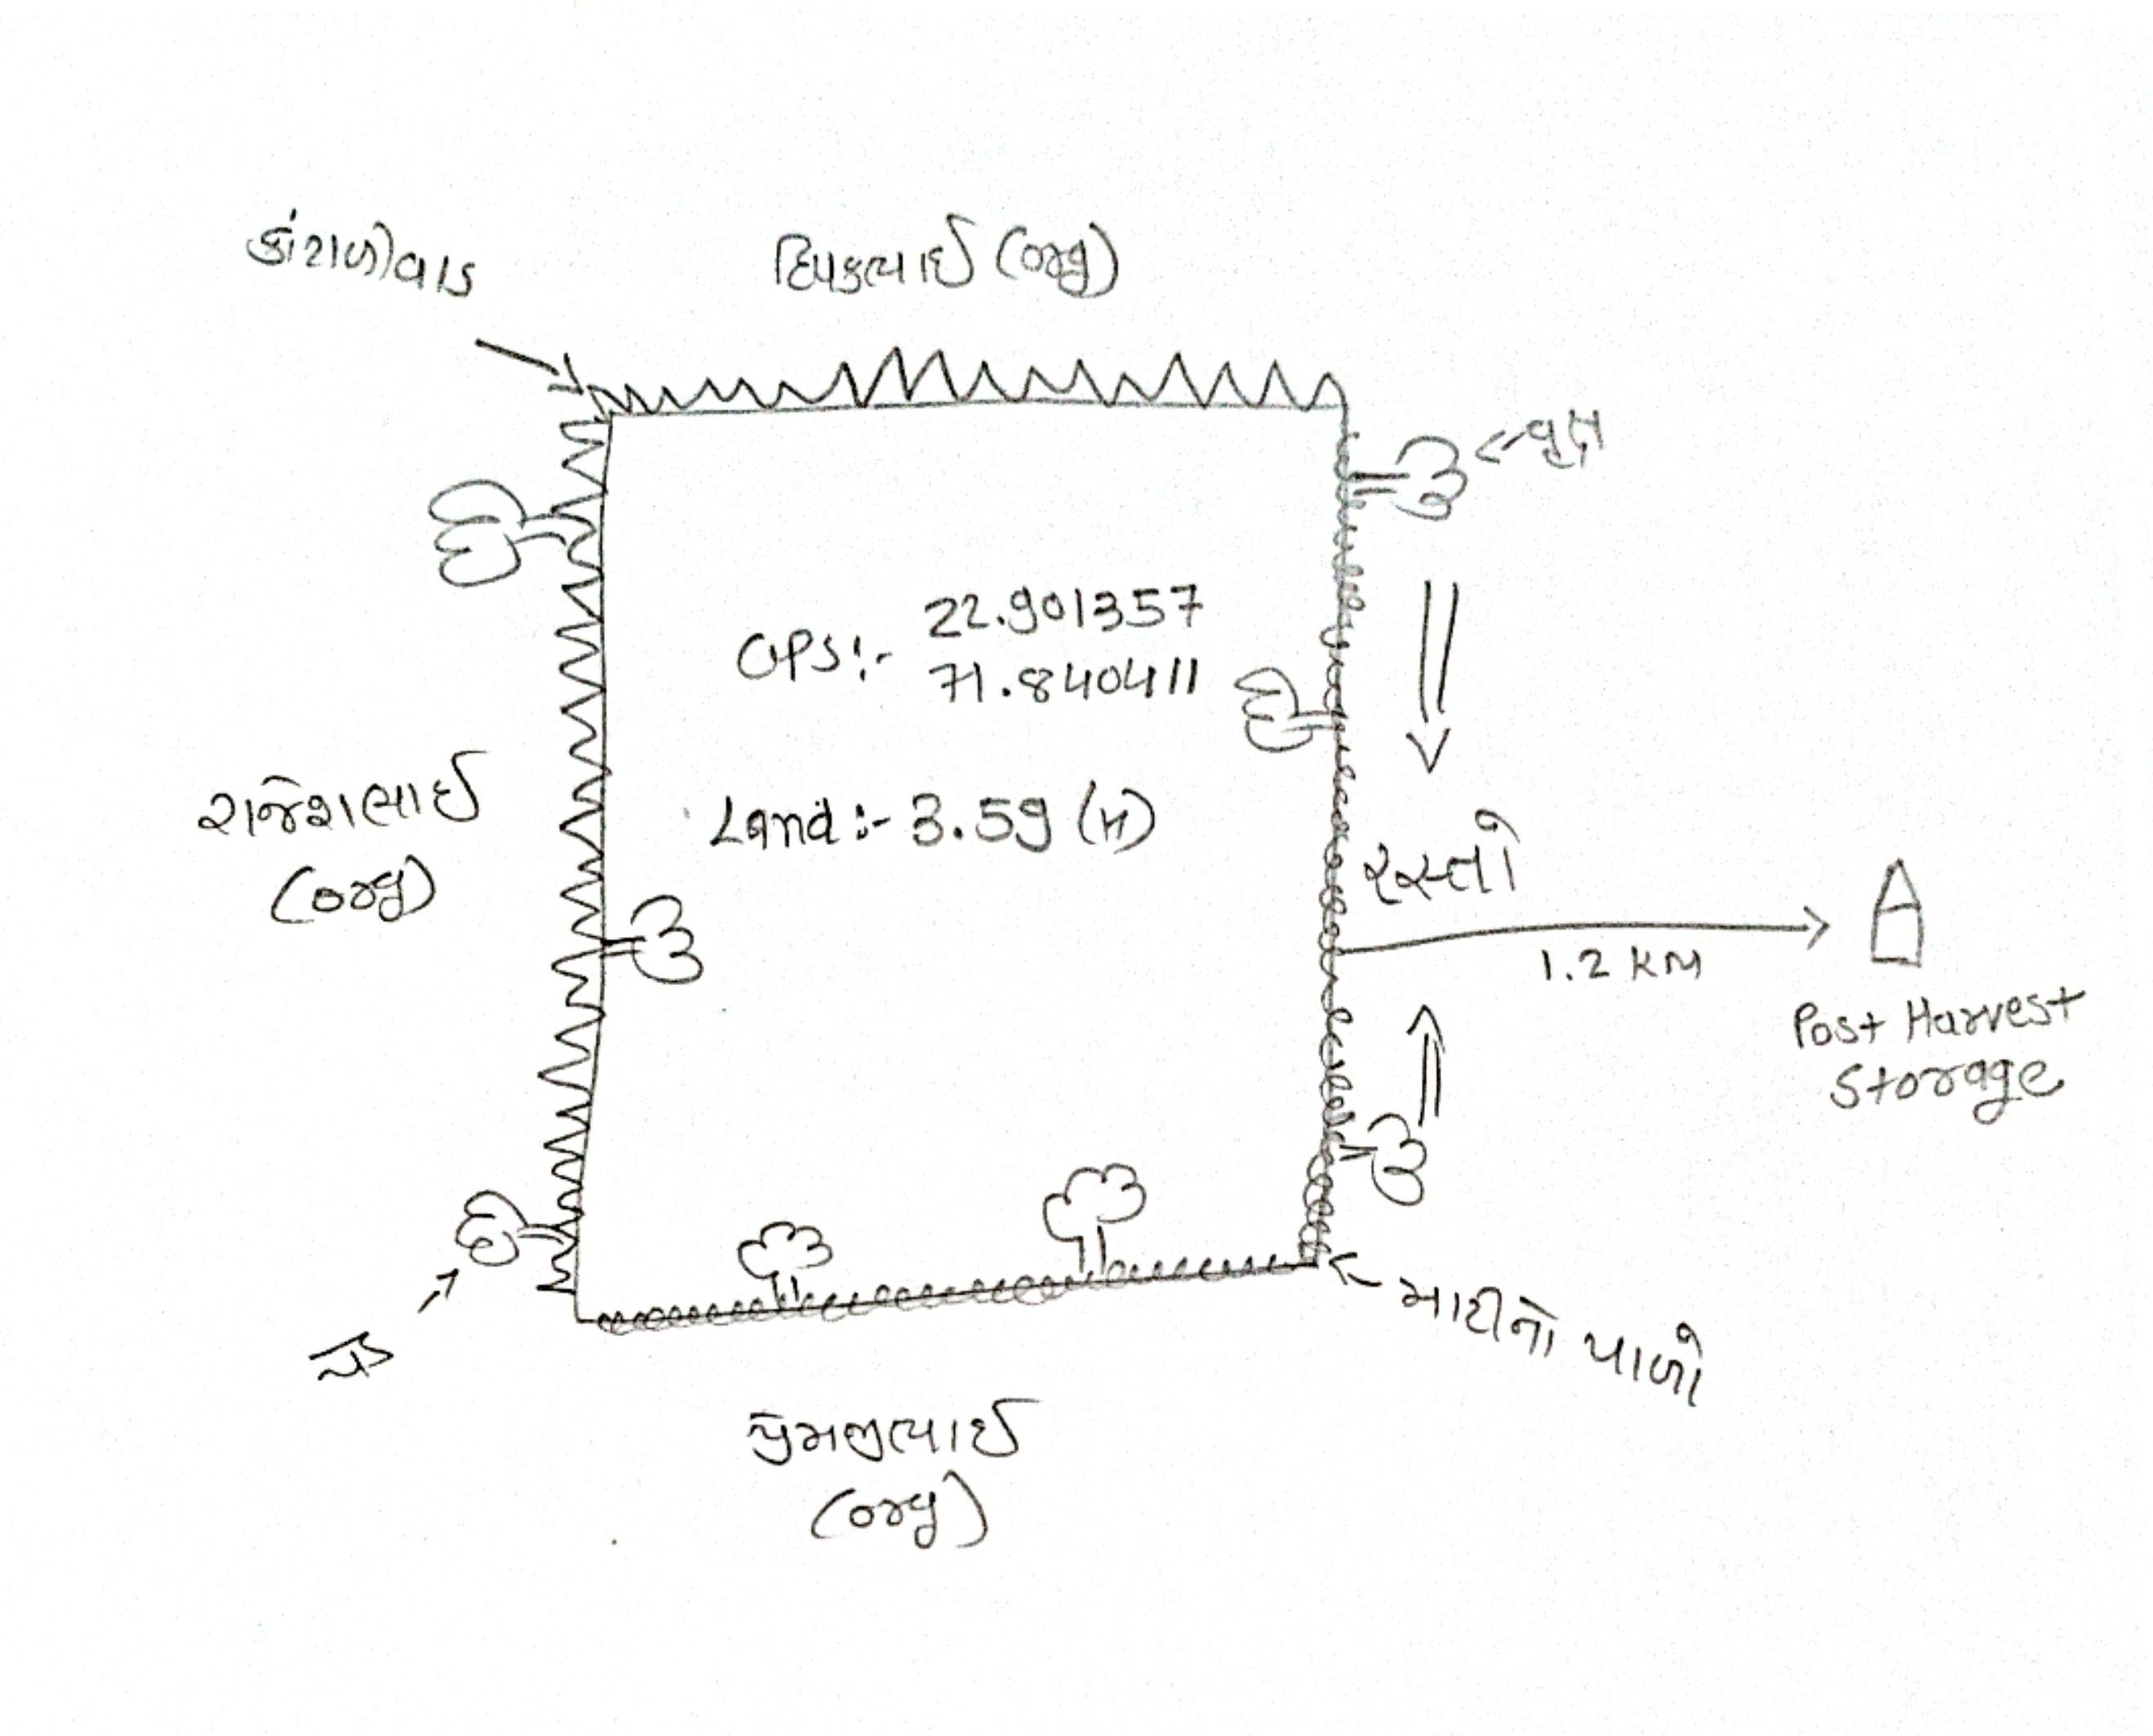 કાંટાળીવાડ
દિપકભાઈ (org)
વૃક્ષ
GPS:- 22.901357
71.840411
Land :- 3.59 (H)
રાજેશભાઈ
(org)
રસ્તો
1.2 KM
Post Harvest
Storage
માટીનો પાળો
પ્રેમજીભાઈ
(org)